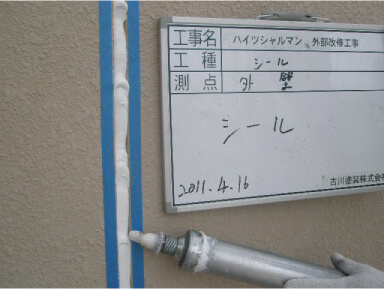 工事名 ハイツシャルマン 外部改修工事
工種 シール
測点 外壁
シール
2011.4.16
古川塗装株式会